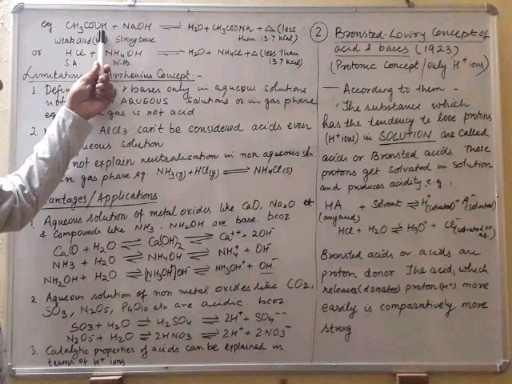 eg CH3COOH + NaOH ⇌ H2O + CH3COONa + Δ (less
than 13.7 kcal)
Weak acid Strong base
or HCl + NH4OH ⇌ H2O + NH4Cl + Δ (less than
13.7 kcal)
S.A W.B
Limitations Arrhenius Concept :-
1. bases only in aqueous solutions
not AQUEOUS solutions or in gas phase
gas is not acid
2. AlCl3 can't be considered acids even
aqueous solution
not explain neutralisation in non aqueous
gas phase eg NH3(g) + HCl(g) ⇌ NH4Cl(s)
Advantages / Applications
1. Aqueous solution of metal oxides like CaO, Na2O et
& compounds like NH3, NH2OH are base bcoz
CaO + H2O ⇌ Ca(OH)2 ⇌ Ca++ + 2OH-
NH3 + H2O ⇌ NH4OH ⇌ NH4+ + OH-
NH2OH + H2O ⇌ [NH3OH]OH ⇌ NH3OH+ + OH-
2. Aqueous solution of non metal oxides like CO2,
SO3, N2O5, P4O10 etc are acidic bcoz
SO3 + H2O ⇌ H2SO4 ⇌ 2H+ + SO4--
N2O5 + H2O ⇌ 2HNO3 ⇌ 2H+ + 2NO3-
3. Catalytic properties of acids can be explained in
terms of H+ ions
2 Bronsted-Lowry Concept of
acid & bases (1923)
(Protonic Concept / only H+ ions)
— According to them -
"The substance which
has the tendency to lose protons
(H+ ions) in SOLUTION are called
acids or Bronsted acids. These
protons get solvated in solution
and produces acidity e.g.;
HA + Solvent ⇌ H+(solvated) + A-(solvated)
(any acid)
HCl + H2O ⇌ H3O+ + Cl-
Bronsted acids or acids are
proton donor The acid, which
releases (donates) proton (H+) more
easily is comparatively more
strong